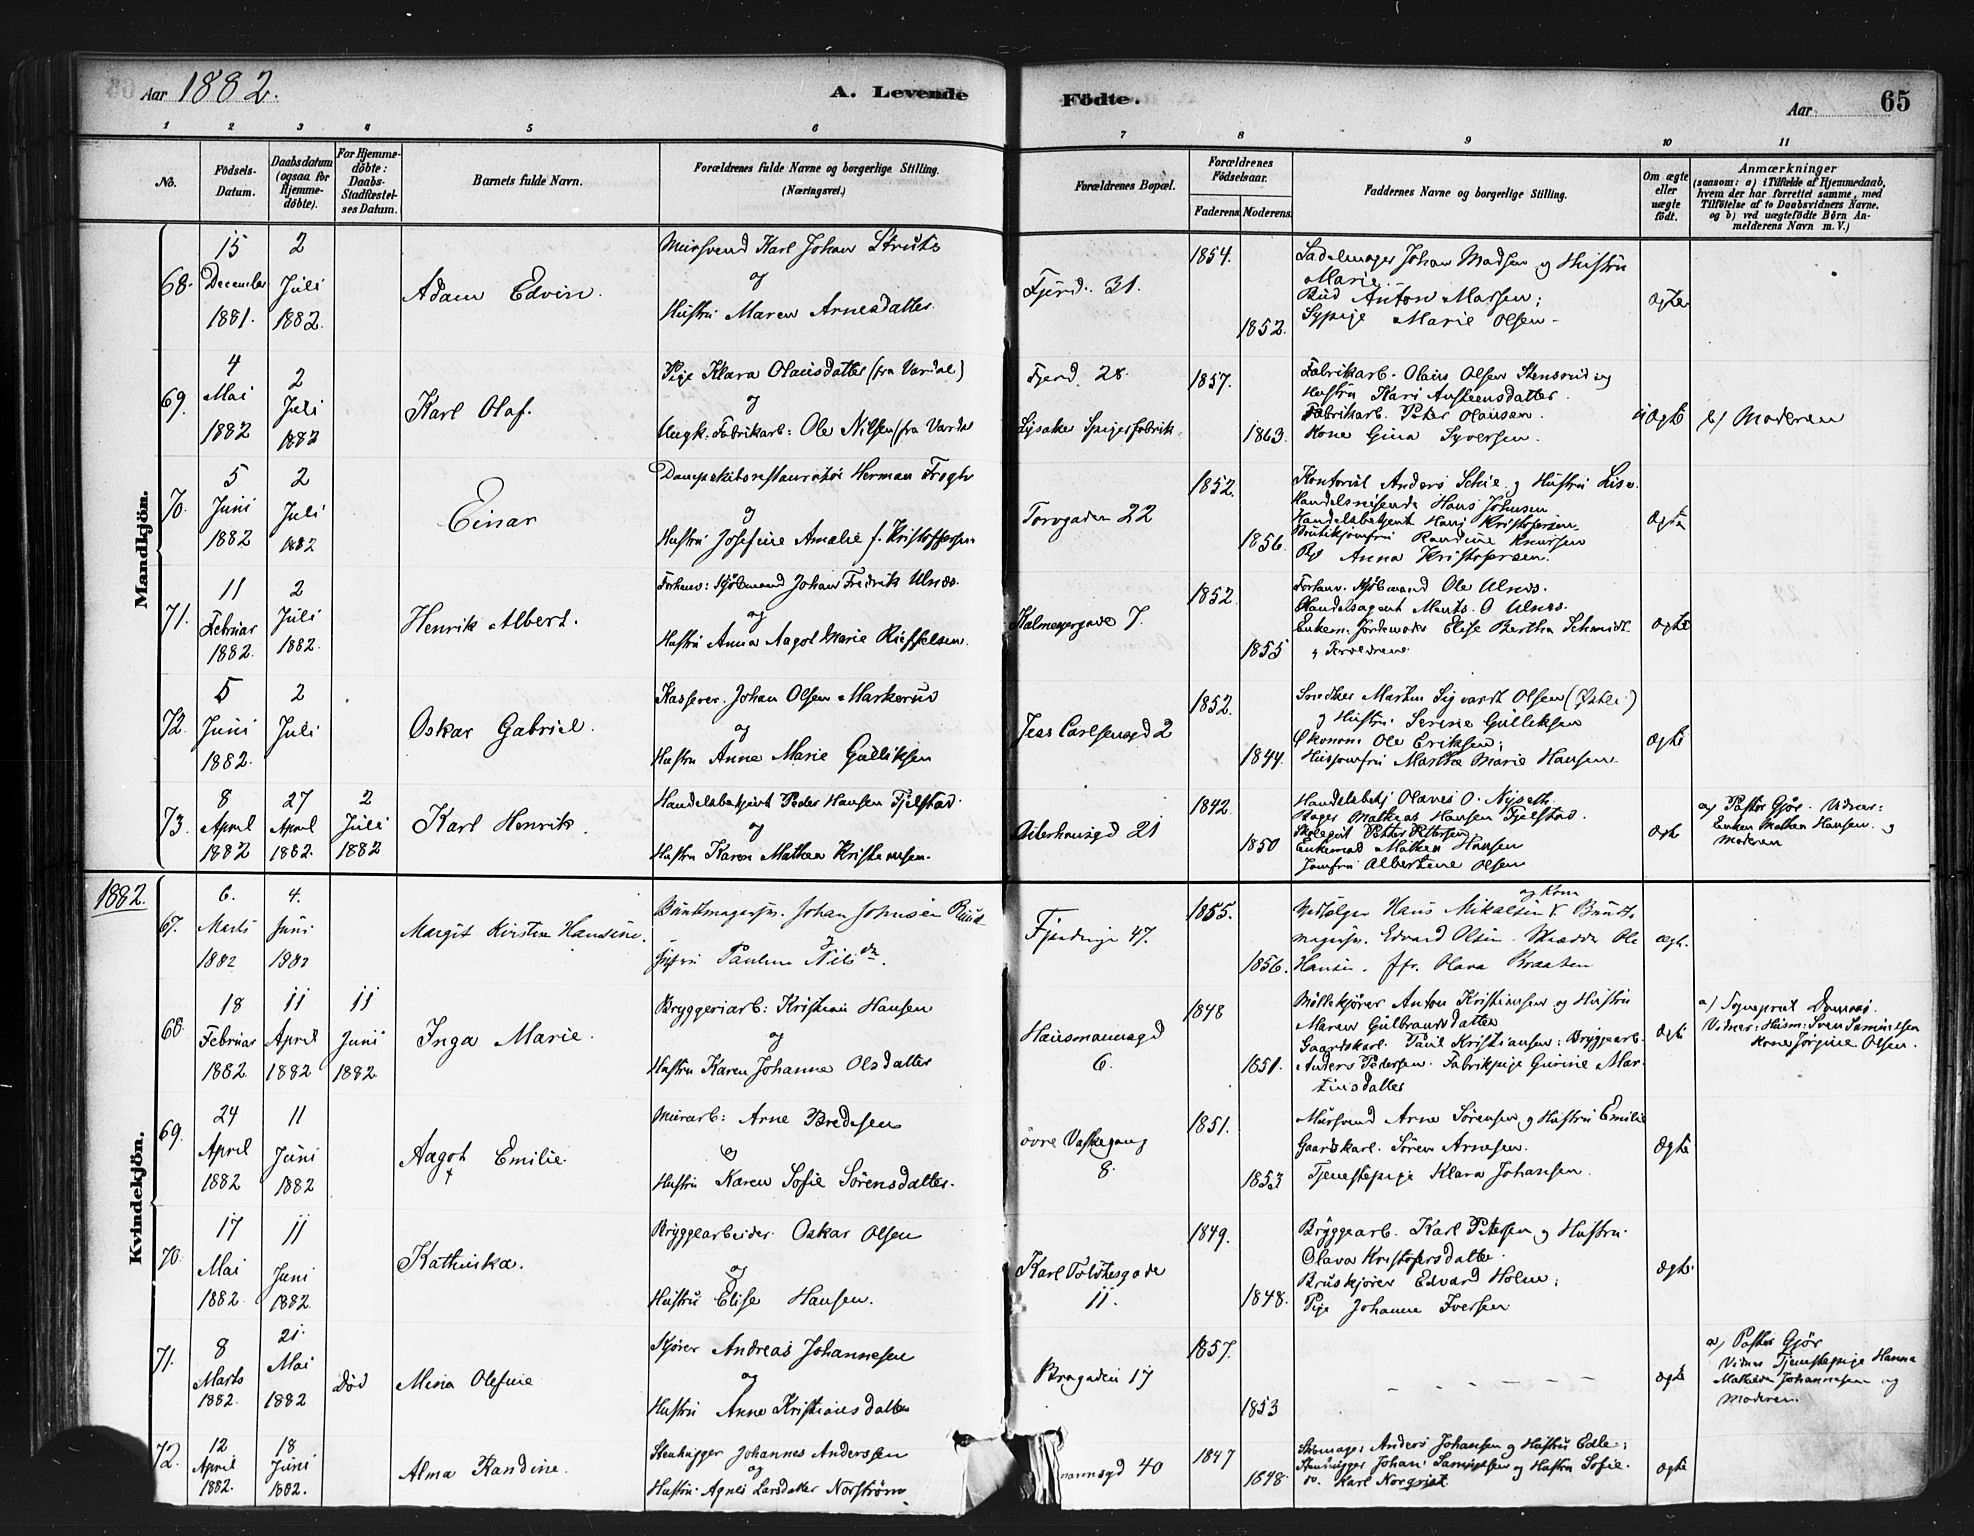 Aar 1882.
A. Levende
Födte.
Aar
65
1 2 3 4 5 6 7 8 9 10 11
No.
Födsels-
Datum.
Daabsdatum
(ogsaa for
Hjemme-
döbte).
For Hjemme-
döbte:
Daabs-
Stadfæstel-
ses Datum.
Barnets fulde Navn.
Forældrenes fulde Navne og borgerlige Stilling.
(Næringsvei.)
Forældrenes Bopæl.
Forældrenes
Födselsaar.
Faderens. Moderens.
Faddernes Navne og borgerlige Stilling.
Om ægte
eller
uægte
födt.
Anmærkninger
(saasom: a) i Tilfælde af Hjemmedaab,
hvem der har forrettet samme, med
Tilföielse af to Daabsvidners Navne,
og b) ved uægtefödte Börn An-
melderens Navn m. V.)
Mandkjön.
68.
15
December
1881.
2
Juli
1882.
Adam Edvin.
Mursvend Karl Johan
og
Hustru Maren Arnesdatter
Fjerd. 31.
1854.
1852.
Sadelmager Johan Madsen og Hustru
Marie.
Bud Anton Massen;
Sypige Marie Olsen
ægte
69.
4
Mai
1882
2
Juli
1882
Karl Olaf.
Pige Klara Olausdatter (fra Vardal)
og
Ungk. Fabrikarb: Ole Nilsen (fra Vardal
Fjerd. 28.
Lysaker Spigerfabrik
1857.
1863.
Fabrikarb. Olaus Olsen Stensrud og
Hustru Kari Austensdatter.
Fabrikarb. Peter Olausen.
Kone Gina Syversen.
uægte
b) Moderen
70.
5
Juni
1882
2
Juli
1882
Einar
Dampskibsrestauratör Herman
og
Hustru Josefine Amalie f. Kristoffersen
Torvgaden 22
1852.
1856.
Kontorist Anders Schie og Hustru Lise.
Handelsreisende Hans Johnsen
Handelsbetjent Hans Kristofersen
Butikjomfru Randine Knutsen
Pige Anna Kristofersen.
ægte
71.
11
Februar
1882.
2
Juli
1882.
Henrik Albert.
Forhenv: Kjöbmand Johan Fredrik Ulnæs.
og
Hustru Anna Aagot Marie
Kalmeyergade 7.
1852
1855
Forhenv. Kjöbmand Ole Ulnæs.
Handelsagent Ments. O Ulnæs.
Enkem: Jordemoder Elise Bertha Schmidt
og Forældrene
ægte
72.
5
Juni
1882.
2
Juli
Oskar Gabriel.
Kasserer Johan Olsen Markerud
og
Hustru Anne Marie Gulliksen
Jess Carlsensgd 2
1852.
1844.
Snedker Martin Sigvardt Olsen (Østli)
og Hustru Serine Gulliksen
Økonom Ole Eriksen;
Husjomfru Marthe Marie Hansen.
ægte
73.
8
April
1882
27
April
1882.
2
Juli
1882
Karl Henrik.
Handelsbetjent Peder Hansen Fjelstad.
og
Hustru Karen Mathea Kristiansen.
Akershusgd 21
1842
1850
Handelsbetj Olaves O. Nyseth.
Bager Mathias Hansen Fjelstad.
Skolegut Petter Pettersen
Enkemad Mathea Hansen
Jomfru Albertine Olsen
ægte
a) Pastor Gjör. Vidner:
Enken Mathea Hansen og
Moderen
1882.
Kvindekjön.
67.
6.
Marts
1882
4.
Juni
1882
Margit Kirstine Hansine.
Buntmagersv. Johan Johnsen Ruud
og
Hustru Pauline Nilsdtr.
Fjerdingen 47.
1855.
1856.
og Kone
Vedsælger Hans Mikalsen Bunt-
magersv. Edvard Olsen. Skrædder Ole
Hansen. Jfr. Olava Braaten
ægt.
68.
18
Februar
1882.
11
April
1882
11
Juni
1882
Inga Marie.
Bryggeriarb: Kristian Hansen
og
Hustru Karen Johanne Olsdatter
Hausmannsgd
6.
1848
1851.
Möllekjörer Anton Kristiansen og Hustru
Maren Gulbrandsdatter
Gaardskarl. Paul Kristiansen: Bryggearb.
Anders Pedersen. Fabrikpige Gurine Mar-
tinsdatter
ægte
a) Sognepræst
Vidner: Husm: Sven Samuelsen
Kone Jörgine Olsen.
69.
24
April
1882
11
Juni
1882
Aagot Emilie.
Murarb: Arne Bredesen
og
Hustru Karen Sofie Sörensdatter.
övre Vaskegang
8.
1851.
1853
Mursvend Arne Sörensen og Hustru Emilie
Gaardskarl. Sören Arnesen.
Tjenestepige Klara Johansen.
ægte
70.
17
Mai
1882.
11
Juni
1882
Kathinka.
Bryggearbeider Oskar Olsen
og
Hustru Elise Hansen.
Karl Johansgade
11.
1849.
1848.
Bryggearb. Karl Petersen og Hustru
Olava Kristofersdatter.
Bruskjörer Edvard Holm;
Pige Johanne Iversen
ægte.
71.
8
Marts
1882.
21.
Mai
1882
död
Mina Olefine
Kjörer Andreas Johannesen
og
Hustru Anne Kristiansdatter
Brogaden 17
1857.
1853
- - - - - -
ægte
a) Pastor Gjör
Vidner Tjenestepige Hanna
Mathilde Johannesen og
Moderen.
72.
12
April
1882.
18
Juni
1882.
Alma Randine.
Stenhugger Johannes Anderssen
og
Hustru Agnes Larsdatter Norström
mannsgd 40
1847
1848
Skomager Anders Johansen og Hustru Edle;
Stenhugger Johan Samuelsen og Hustru Sofie.
do. Karl Norqvist
ægte